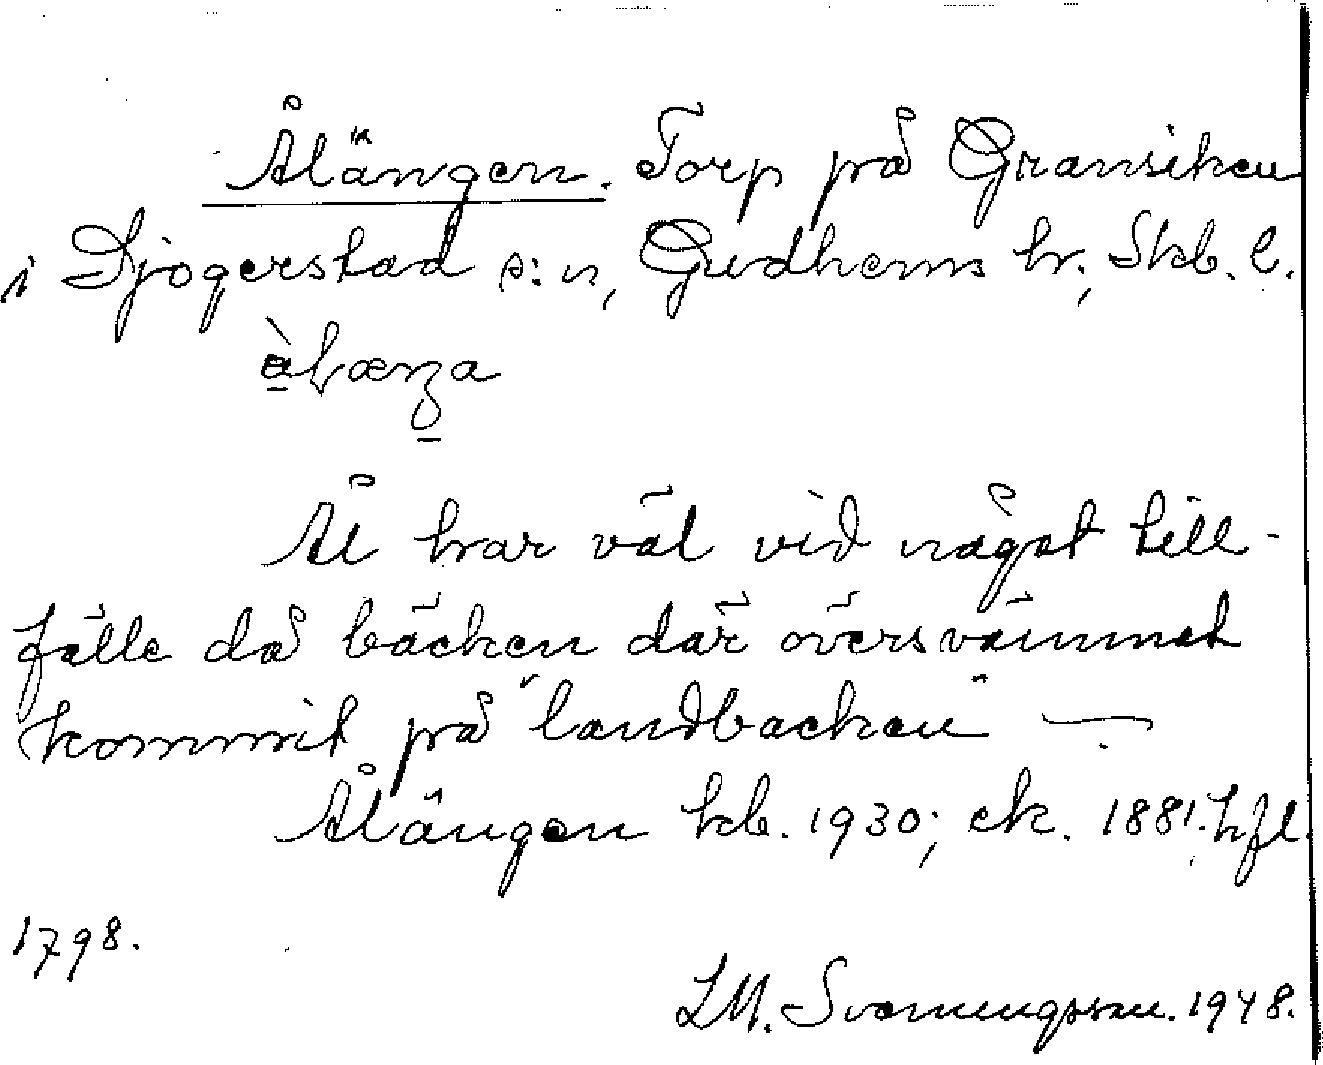 Ålängen. Torp på Gransiken
i Djogerstad s:n, Gudhems hr, Skb. l.
Ål har väl vid något till-
fälle då bäcken där översvämmat
kommit på "landbacken" —
Ålängen kb. 1930; ek. 1881. hfl.
1798.
LM. Svenungsson. 1948.